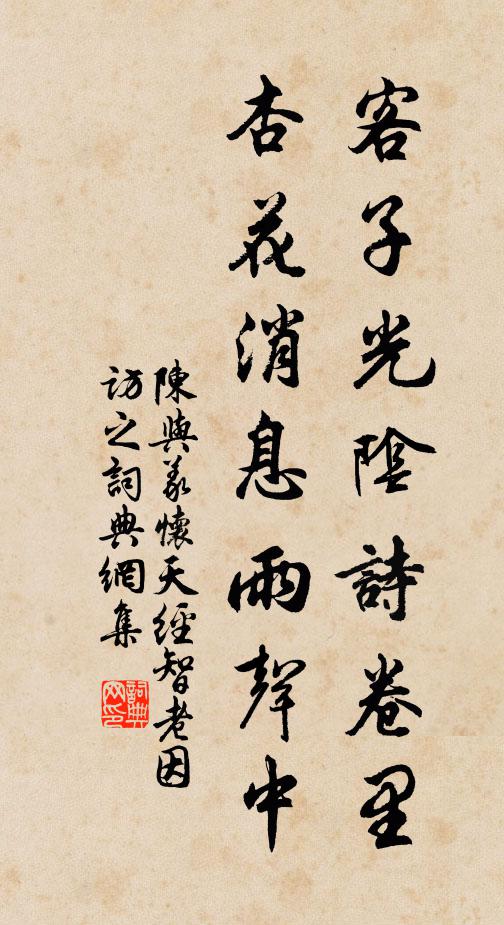 客子光陰詩卷里
杏花消息雨聲中
陳與義懷天經智老因
訪之詞典網集
詞典
网印